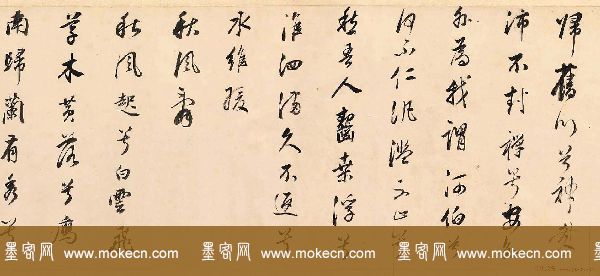 歸舊川兮神哉
沛不封禪兮安
外為我謂河伯兮
何不仁泛濫不止兮
愁吾人齧桑浮兮
淮泗滿久不返兮
水維緩
秋風辭
秋風起兮白雲飛
草木黃落兮鴈
南歸蘭有秀兮
墨客网 www.mokecn.com 墨客网 www.mokecn.com 墨客网 www.mokecn.com